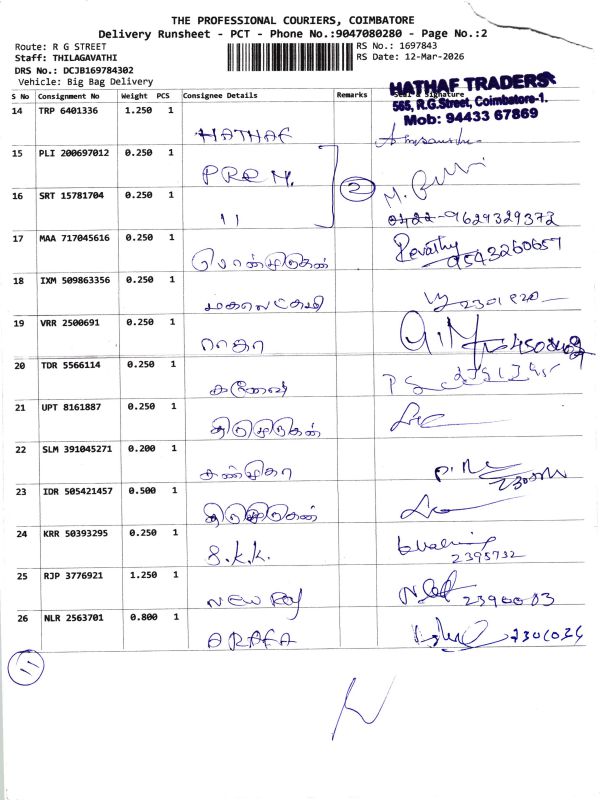 THE PROFESSIONAL COURIERS, COIMBATORE
Delivery Runsheet - PCT - Phone No.:9047080280 - Page No.:2
Route: R G STREET
RS No.: 1697843
Staff: THILAGAVATHI
RS Date: 12-Mar-2026
DRS No.: DCJB169784302
Vehicle: Big Bag Delivery
S No Consignment No Weight PCS Consignee Details Remarks Seal & Signature
HATHAF TRADERS
565, R.G.Street, Coimbatore-1.
Mob: 94433 67869
14 TRP 6401336 1.250 1 HATHAF
15 PLI 200697012 0.250 1 PREM.
2
16 SRT 15781704 0.250 1 11 0422-9629329372
17 MAA 717045616 0.250 1 பொன்முருகன் Revathy 9543260657
18 IXM 509863356 0.250 1 மகாலட்சுமி
19 VRR 2500691 0.250 1 ராகா
20 TDR 5566114 0.250 1 கணேஷ்
21 UPT 8161887 0.250 1 திருமுருகன்
22 SLM 391045271 0.200 1
23 IDR 505421457 0.500 1 திருமுருகன்
24 KRR 50393295 0.250 1 S.K.K. 2395732
25 RJP 3776921 1.250 1 NEW RAJ 2390003
26 NLR 2563701 0.800 1 ARAFA
11